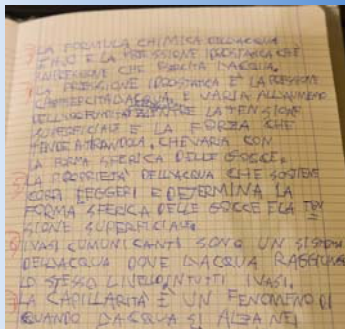 1) LA FORMULA CHIMICA DELL'ACQUA
È H2O E LA PRESSIONE IDROSTATICA CHE
PRESSIONE CHE ESERCITA L'ACQUA.
2) LA PRESSIONE IDROSTATICA È LA PRESSIONE
ESERCITA DALL'ACQUA E VARIA ALL'AUMENTO
MENTRE LA TENSIONE
SUPERFICIALE E LA FORZA CHE
TENDE CHE VARIA CON
LA FORMA SFERICA DELLE GOCCE.
LA PROPRIETÀ DELL'ACQUA CHE SOSTIENE
CORPI LEGGERI E DETERMINA LA
FORMA SFERICA DELLE GOCCE È LA TEN
SIONE SUPERFICIALE.
I VASI COMUNICANTI SONO UN SISTEMA
DELL'ACQUA DOVE L'ACQUA RAGGIUNGE
LO STESSO LIVELLO IN TUTTI I VASI.
LA CAPILLARITÀ È UN FENOMENO DI
QUANDO L'ACQUA SI ALZA NEI